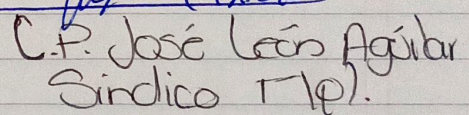 C.P. José León Aguilar
Síndico Mpl.